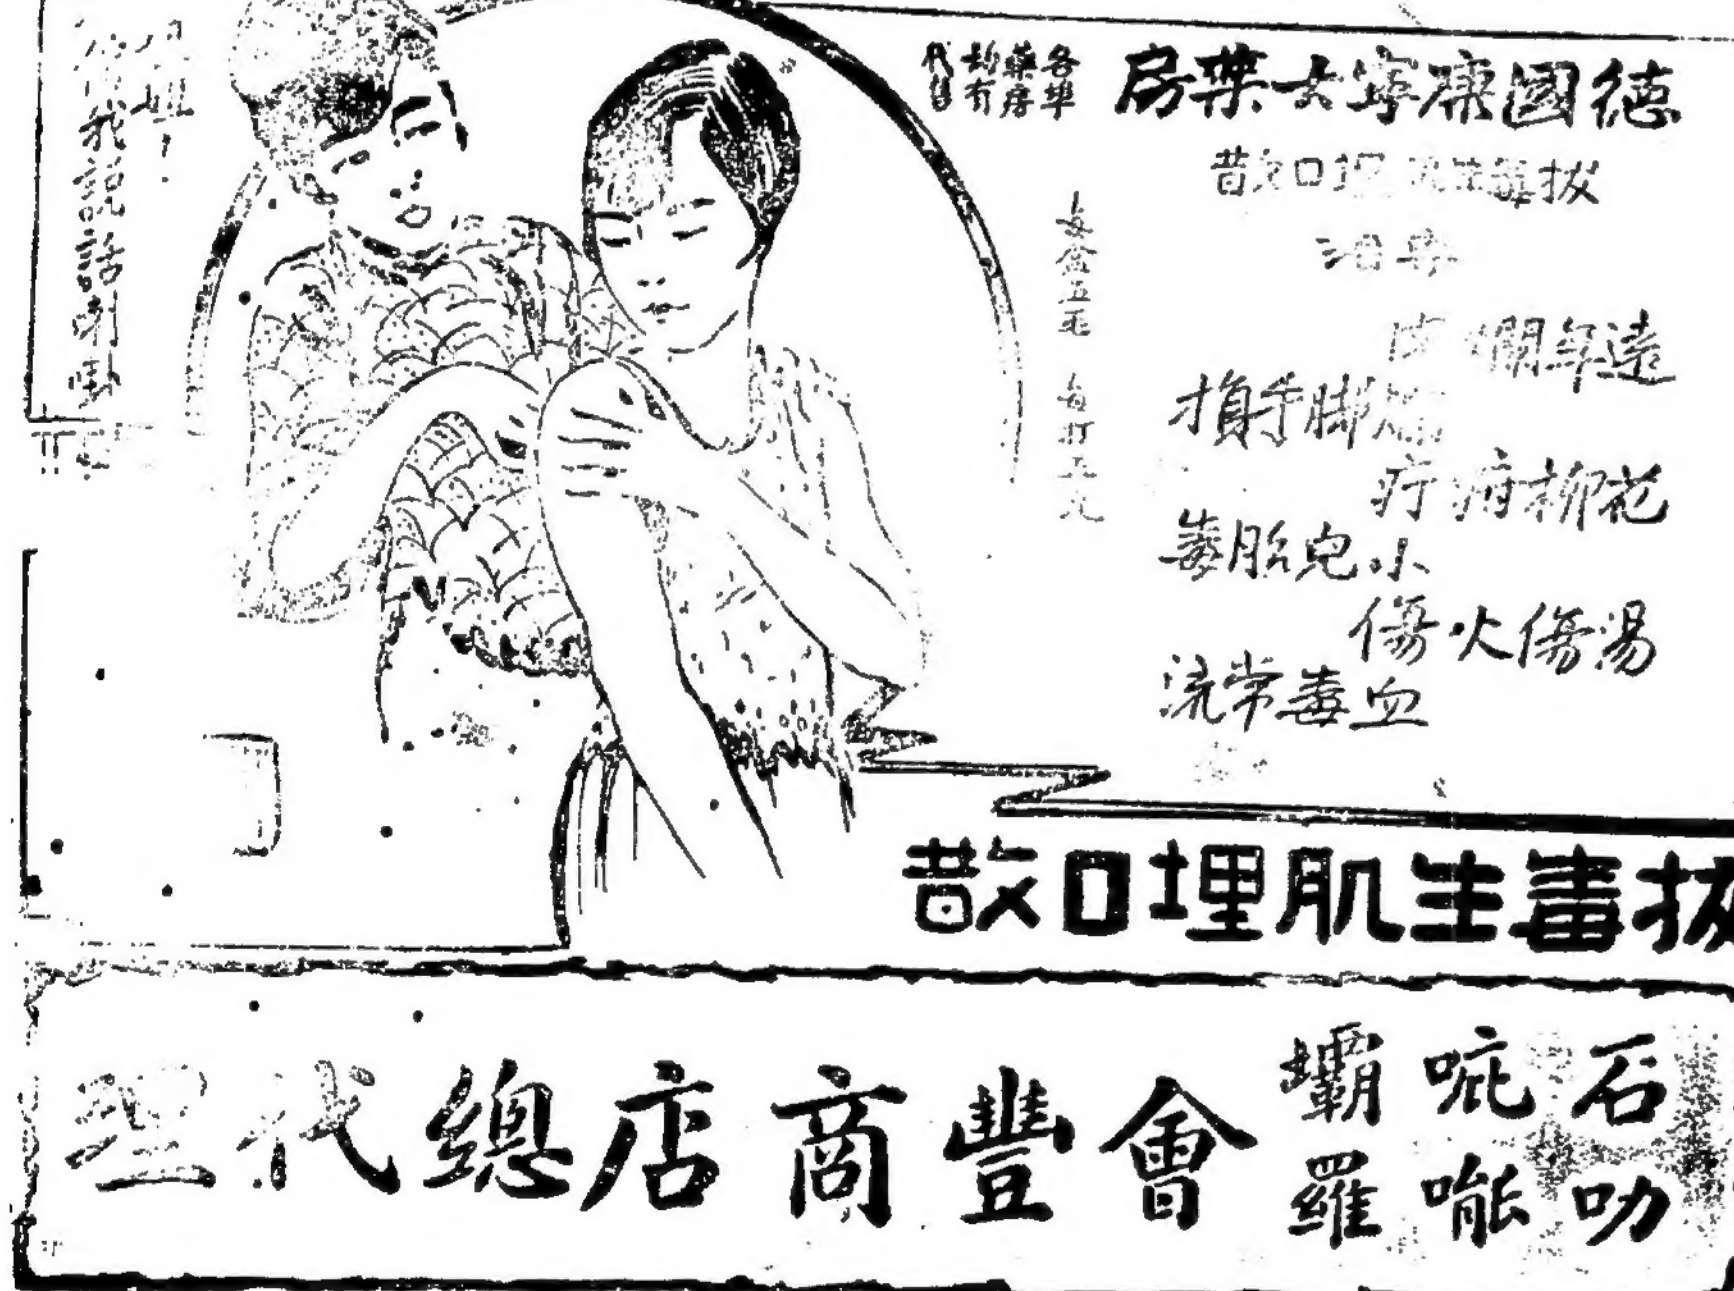 德國康寧大薬房
各埠
藥房
均有
代售
拔毒生肌埋口散
專治
遠年爛
脚手損
花柳疳疔
小兒胎毒
湯傷火傷
血毒常流
每盒五毛 每打五元
拔毒生肌埋口散
石叻
吡㘄
壩羅
會豐商店總代理